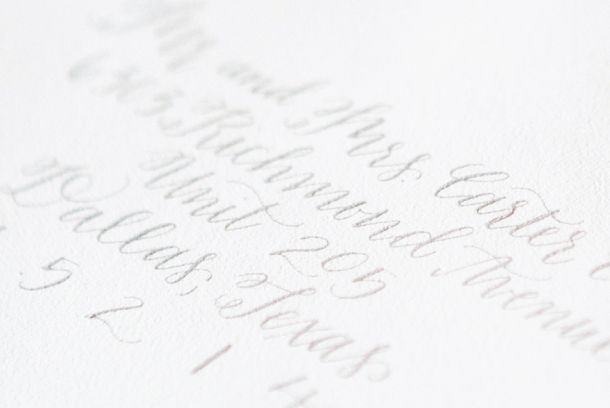 Mr and Mrs. Carter
6303 Richmond Avenue
Unit 205
Dallas, Texas
5 2 1 4